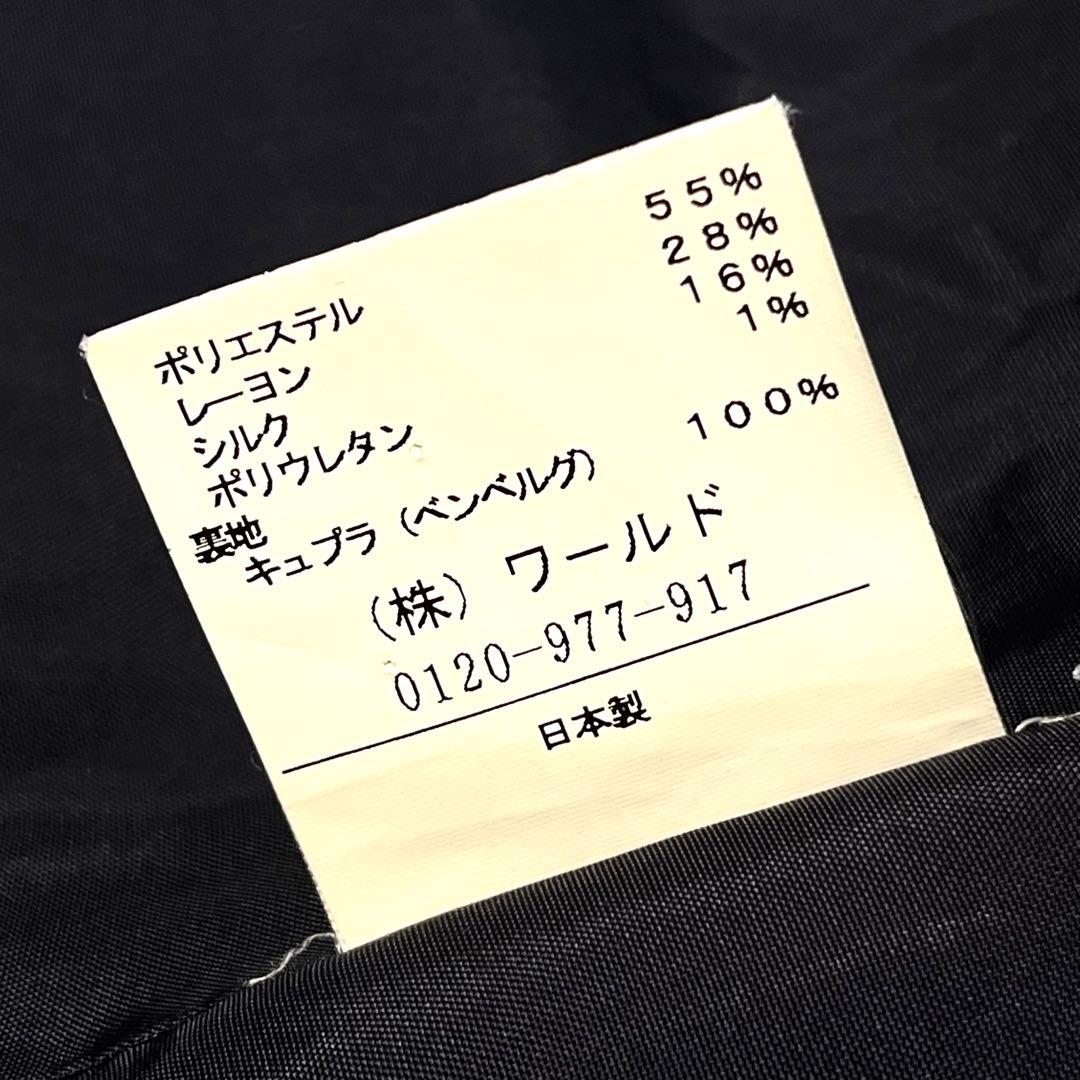 ポリエステル 55%
レーヨン 28%
シルク 16%
ポリウレタン 1%
裏地
キュプラ(ベンベルグ) 100%
(株)ワールド
0120-977-917
日本製